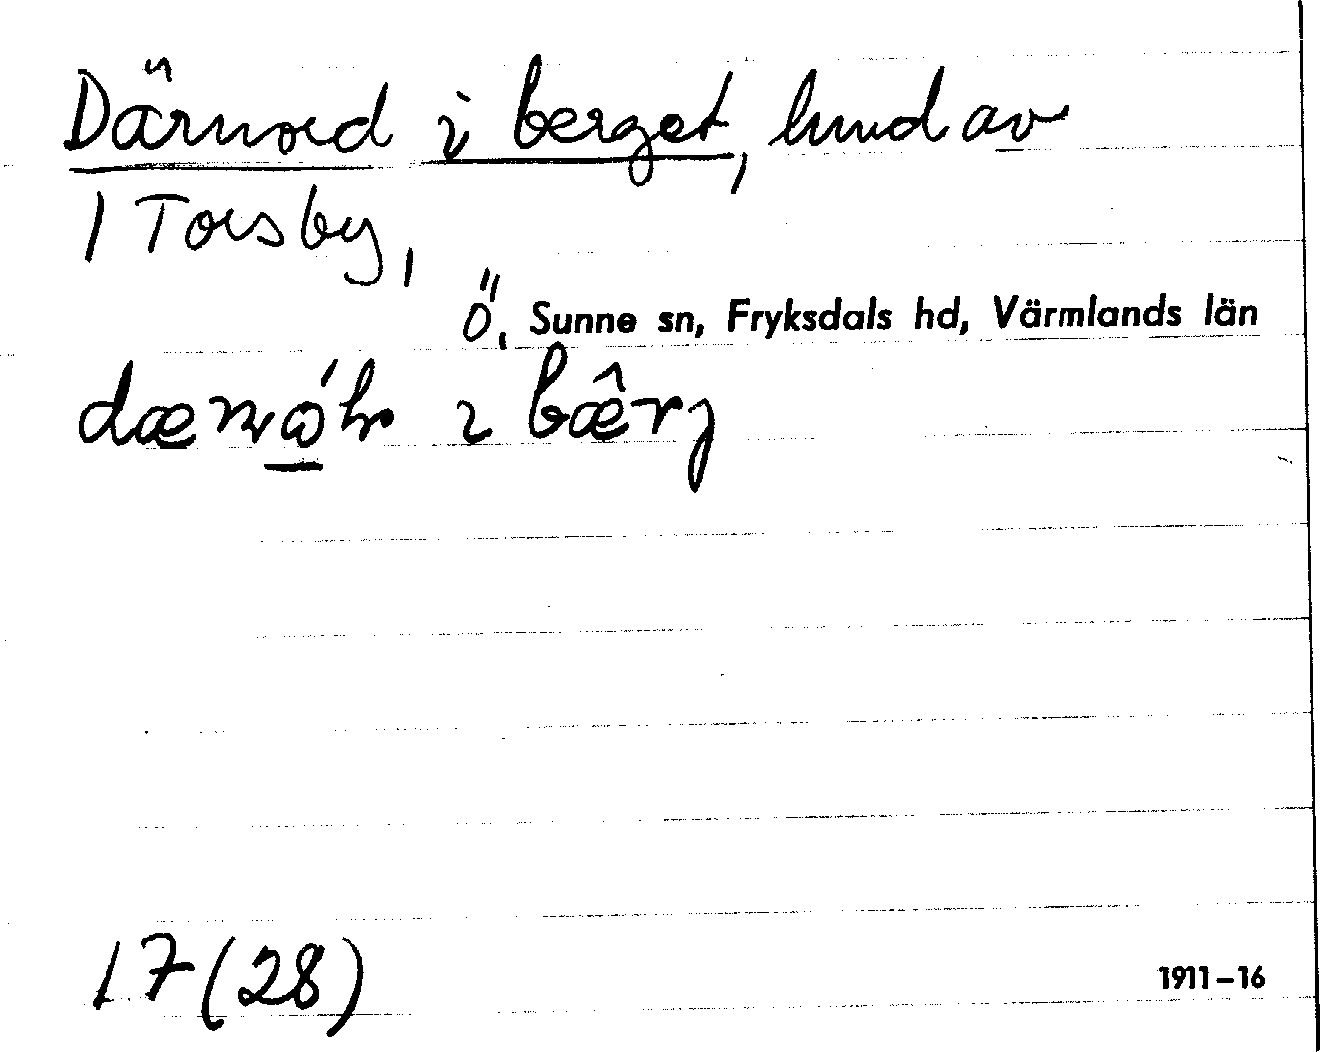 Därnord i berget, hemd av
1 Torsby,
Ö, Sunne sn, Fryksdals hd, Värmlands län
i bæ̂rj
17 (28)
1911–16